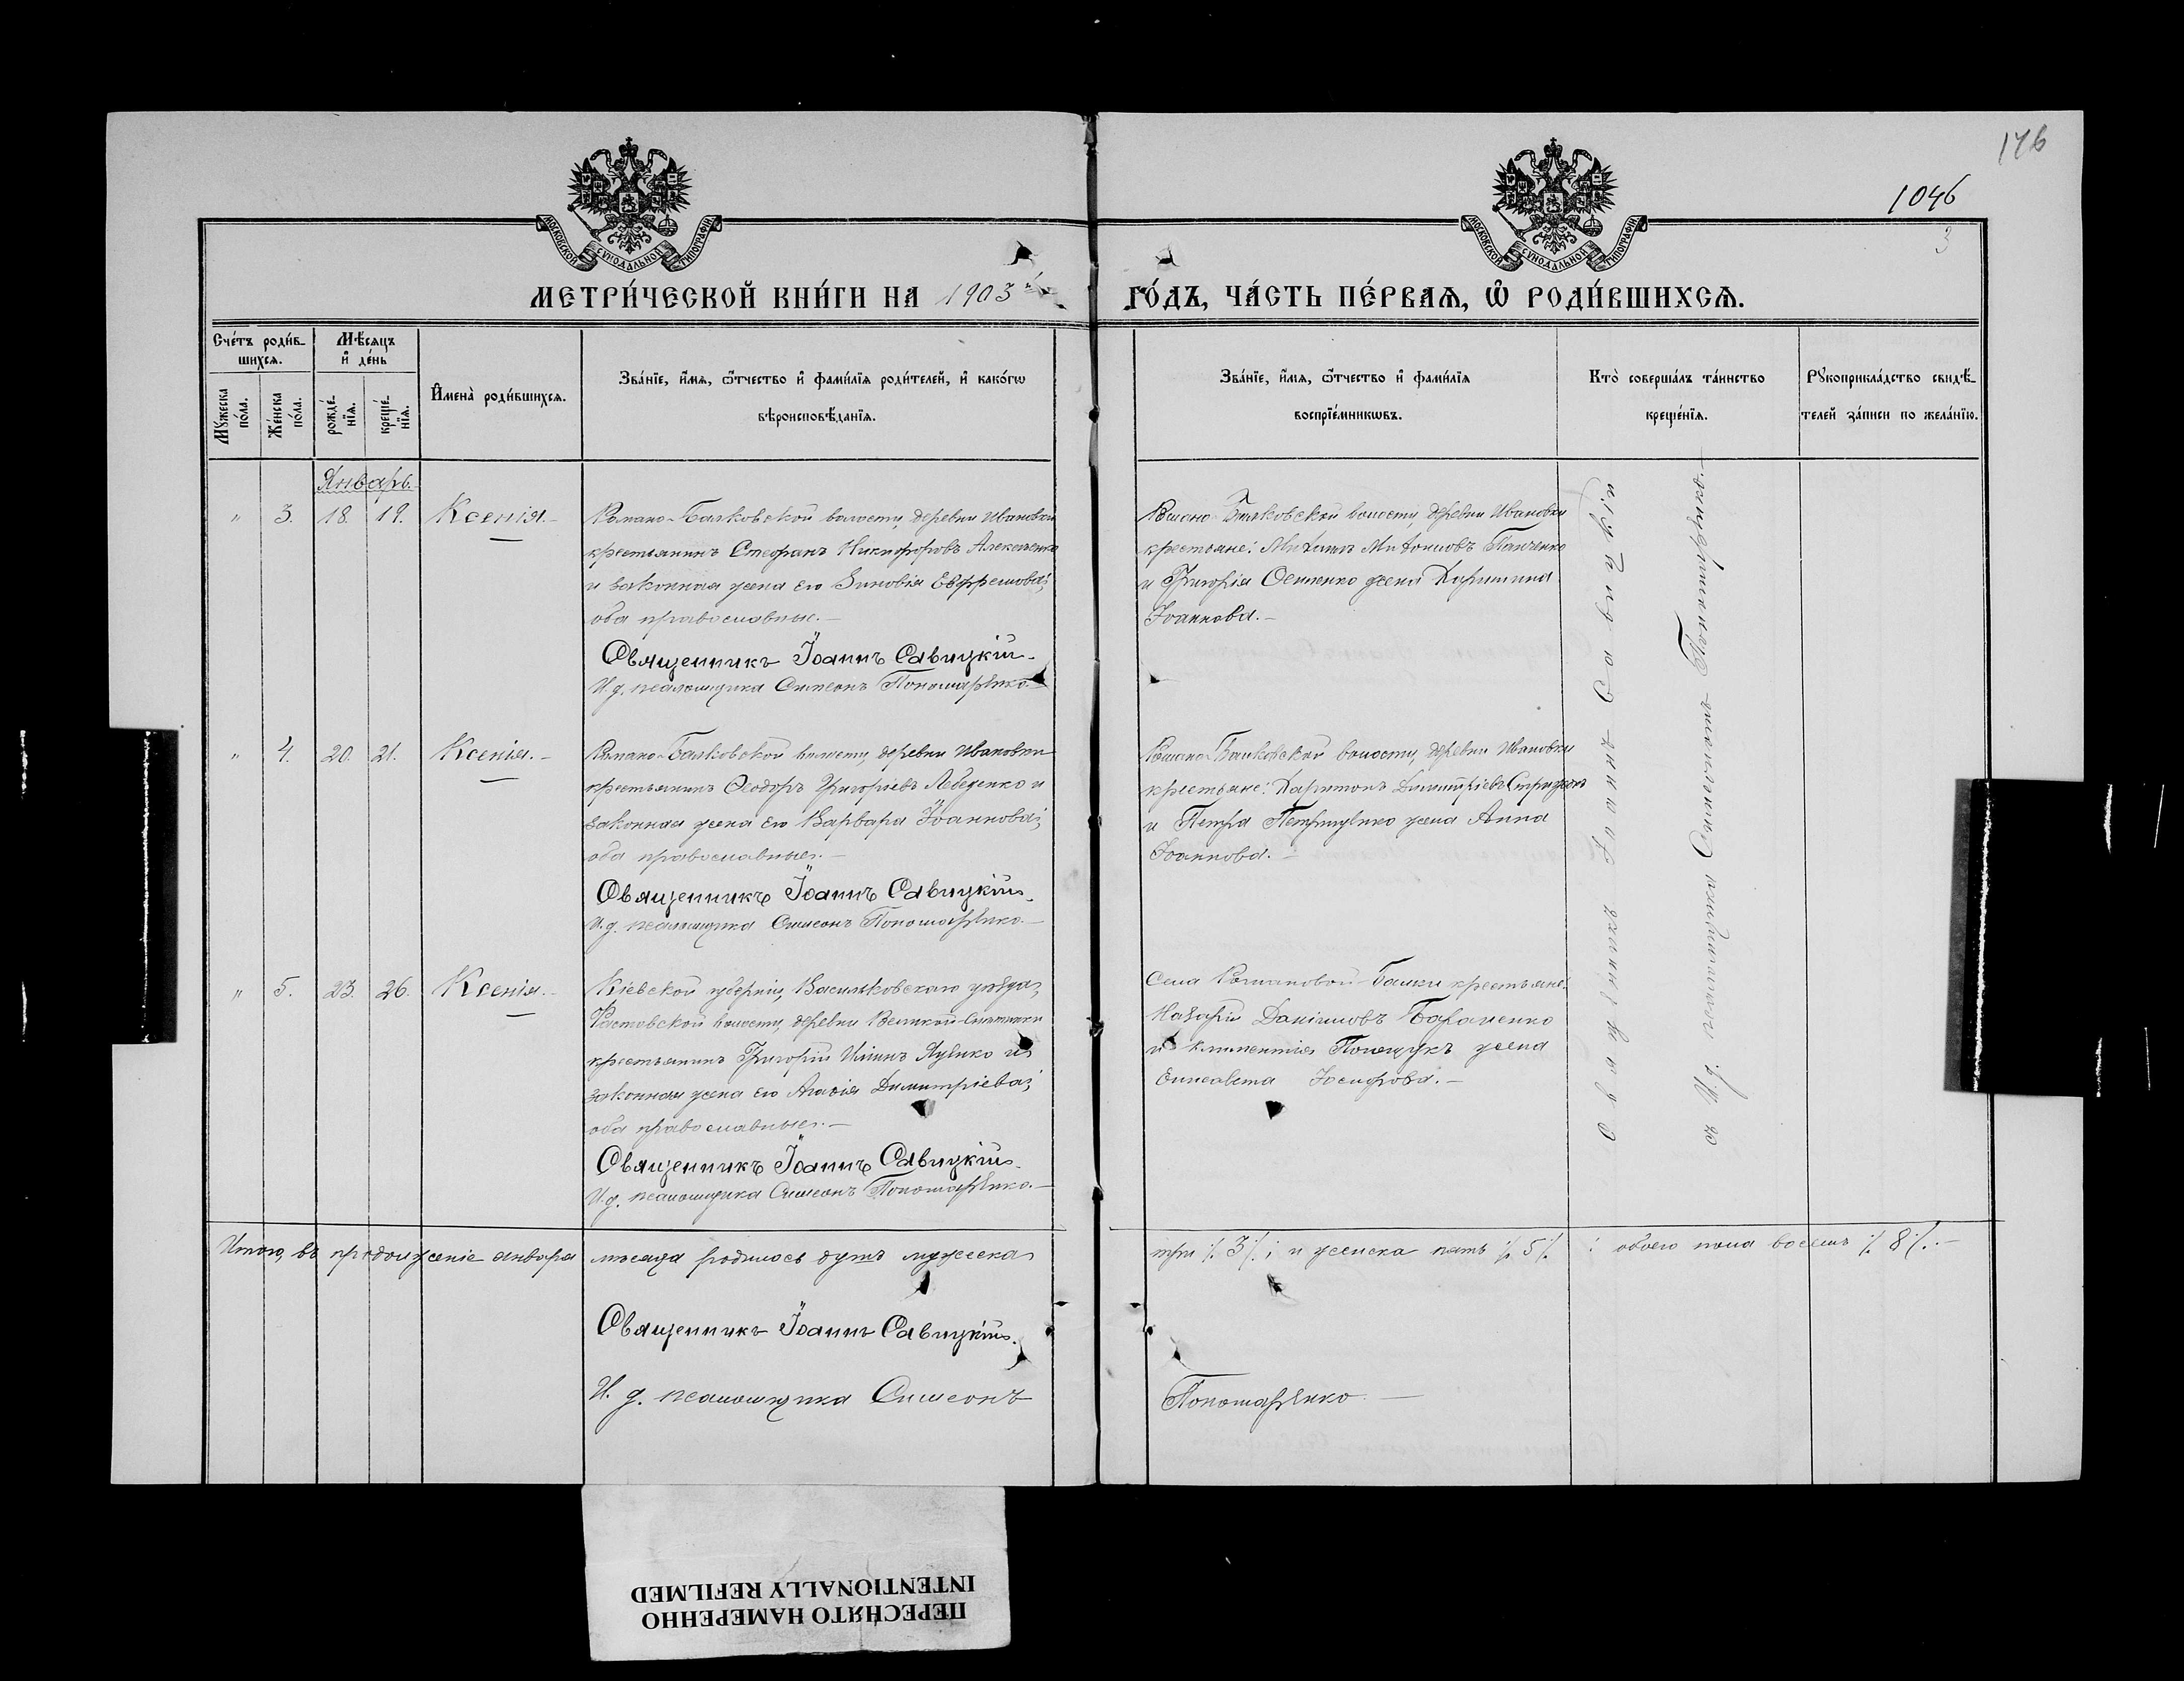 176
1046
3
МОСКОВСКОЙ СѴНОДАЛЬНОЙ ТИПОГРАФІИ
МОСКОВСКОЙ СѴНОДАЛЬНОЙ ТИПОГРАФІИ
МЕТРИ́ЧЕСКОЙ КНИ́ГИ НА 1903й
ГО́ДЪ, ЧА́СТЬ ПЕ́РВАѦ, Ѡ҆ РОДИ́ВШИХСѦ.
Сче́тъ роди́в-
шихсѧ.
Мѣ́сѧцъ
и҆ де́нь
Мꙋ́жеска
по́ла.
Же́нска
по́ла.
рожде́-
нїѧ.
креще́-
нїѧ.
И҆мена̀ роди́вшихсѧ.
Зва́нїе, и҆́мѧ, ѻ҆́тчество и҆ фами́лїѧ роди́телей, и҆ како́гѡ
вѣроисповѣ́данїѧ.
Зва́нїе, и҆́мѧ, ѻ҆́тчество и҆ фами́лїѧ
воспрїе́мникѡвъ.
Кто̀ соверша́лъ та́инство
креще́нїѧ.
Рꙋкоприкла́дство свидѣ́-
телей за́писи по жела́нїю.
Январь.
" 3. 18. 19. Ксенія.-
Романо-Балковской волости, деревни Ивановки
крестьянинъ Стефанъ Никифоровъ Алексѣенко
и законная жена его Зиновія Ефремова;
оба православные.-
Священникъ Іоаннъ Савицкій.
И. д. псаломщика Симеонъ Пономаренко.-
Романо-Балковской волости, деревни Ивановки
крестьяне: Митинъ Митоновъ Панченко
и Григорія Осипенко жена Харитина
Іоаннова.-
" 4. 20. 21. Ксенія.-
Романо-Балковской волости, деревни Ивановки
крестьянинъ Ѳеодоръ Григоріевъ Лебеденко и
законная жена его Варвара Іоаннова;
оба православные.-
Священникъ Іоаннъ Савицкій.
И. д. псаломщика Симеонъ Пономаренко.-
Романо-Балковской волости, деревни Ивановки
крестьяне: Харитонъ Димитріевъ Стрижекъ
и Петра Петриченко жена Анна
Іоаннова.-
" 5. 23. 26. Ксенія.-
Кіевской губерніи, Васильковскаго уѣзда,
Фастовской волости, деревни Великой-Снѣтинки
крестьянинъ Григорій Илiинъ Яценко и
законная жена его Агаѳія Димитріева;
оба православные.-
Священникъ Іоаннъ Савицкій.
И. д. псаломщика Симеонъ Пономаренко.-
Села Романовой-Балки крестьяне:
Назарій Даніиловъ Бараненко
и Климентія Полещукъ жена
Елисавета Іосифова.-
Священникъ Іоаннъ Савицкій
съ И. д. псаломщика Симеономъ Пономаренко.-
Итого, въ продолженіе января мѣсяца родилось душъ мужеска
три ٪ 3 ٪; и женска пять ٪ 5 ٪; обоего пола восемь ٪ 8 ٪.-
Священникъ Іоаннъ Савицкій.
И. д. псаломщика Симеонъ Пономаренко.-
ПЕРЕСНЯТО НАМЕРЕННО
INTENTIONALLY REFILMED